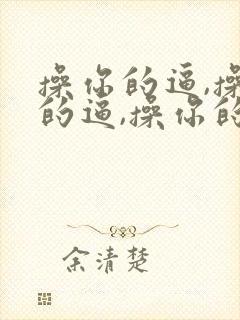 操你的逼,操
的逼,操你的
余清楚